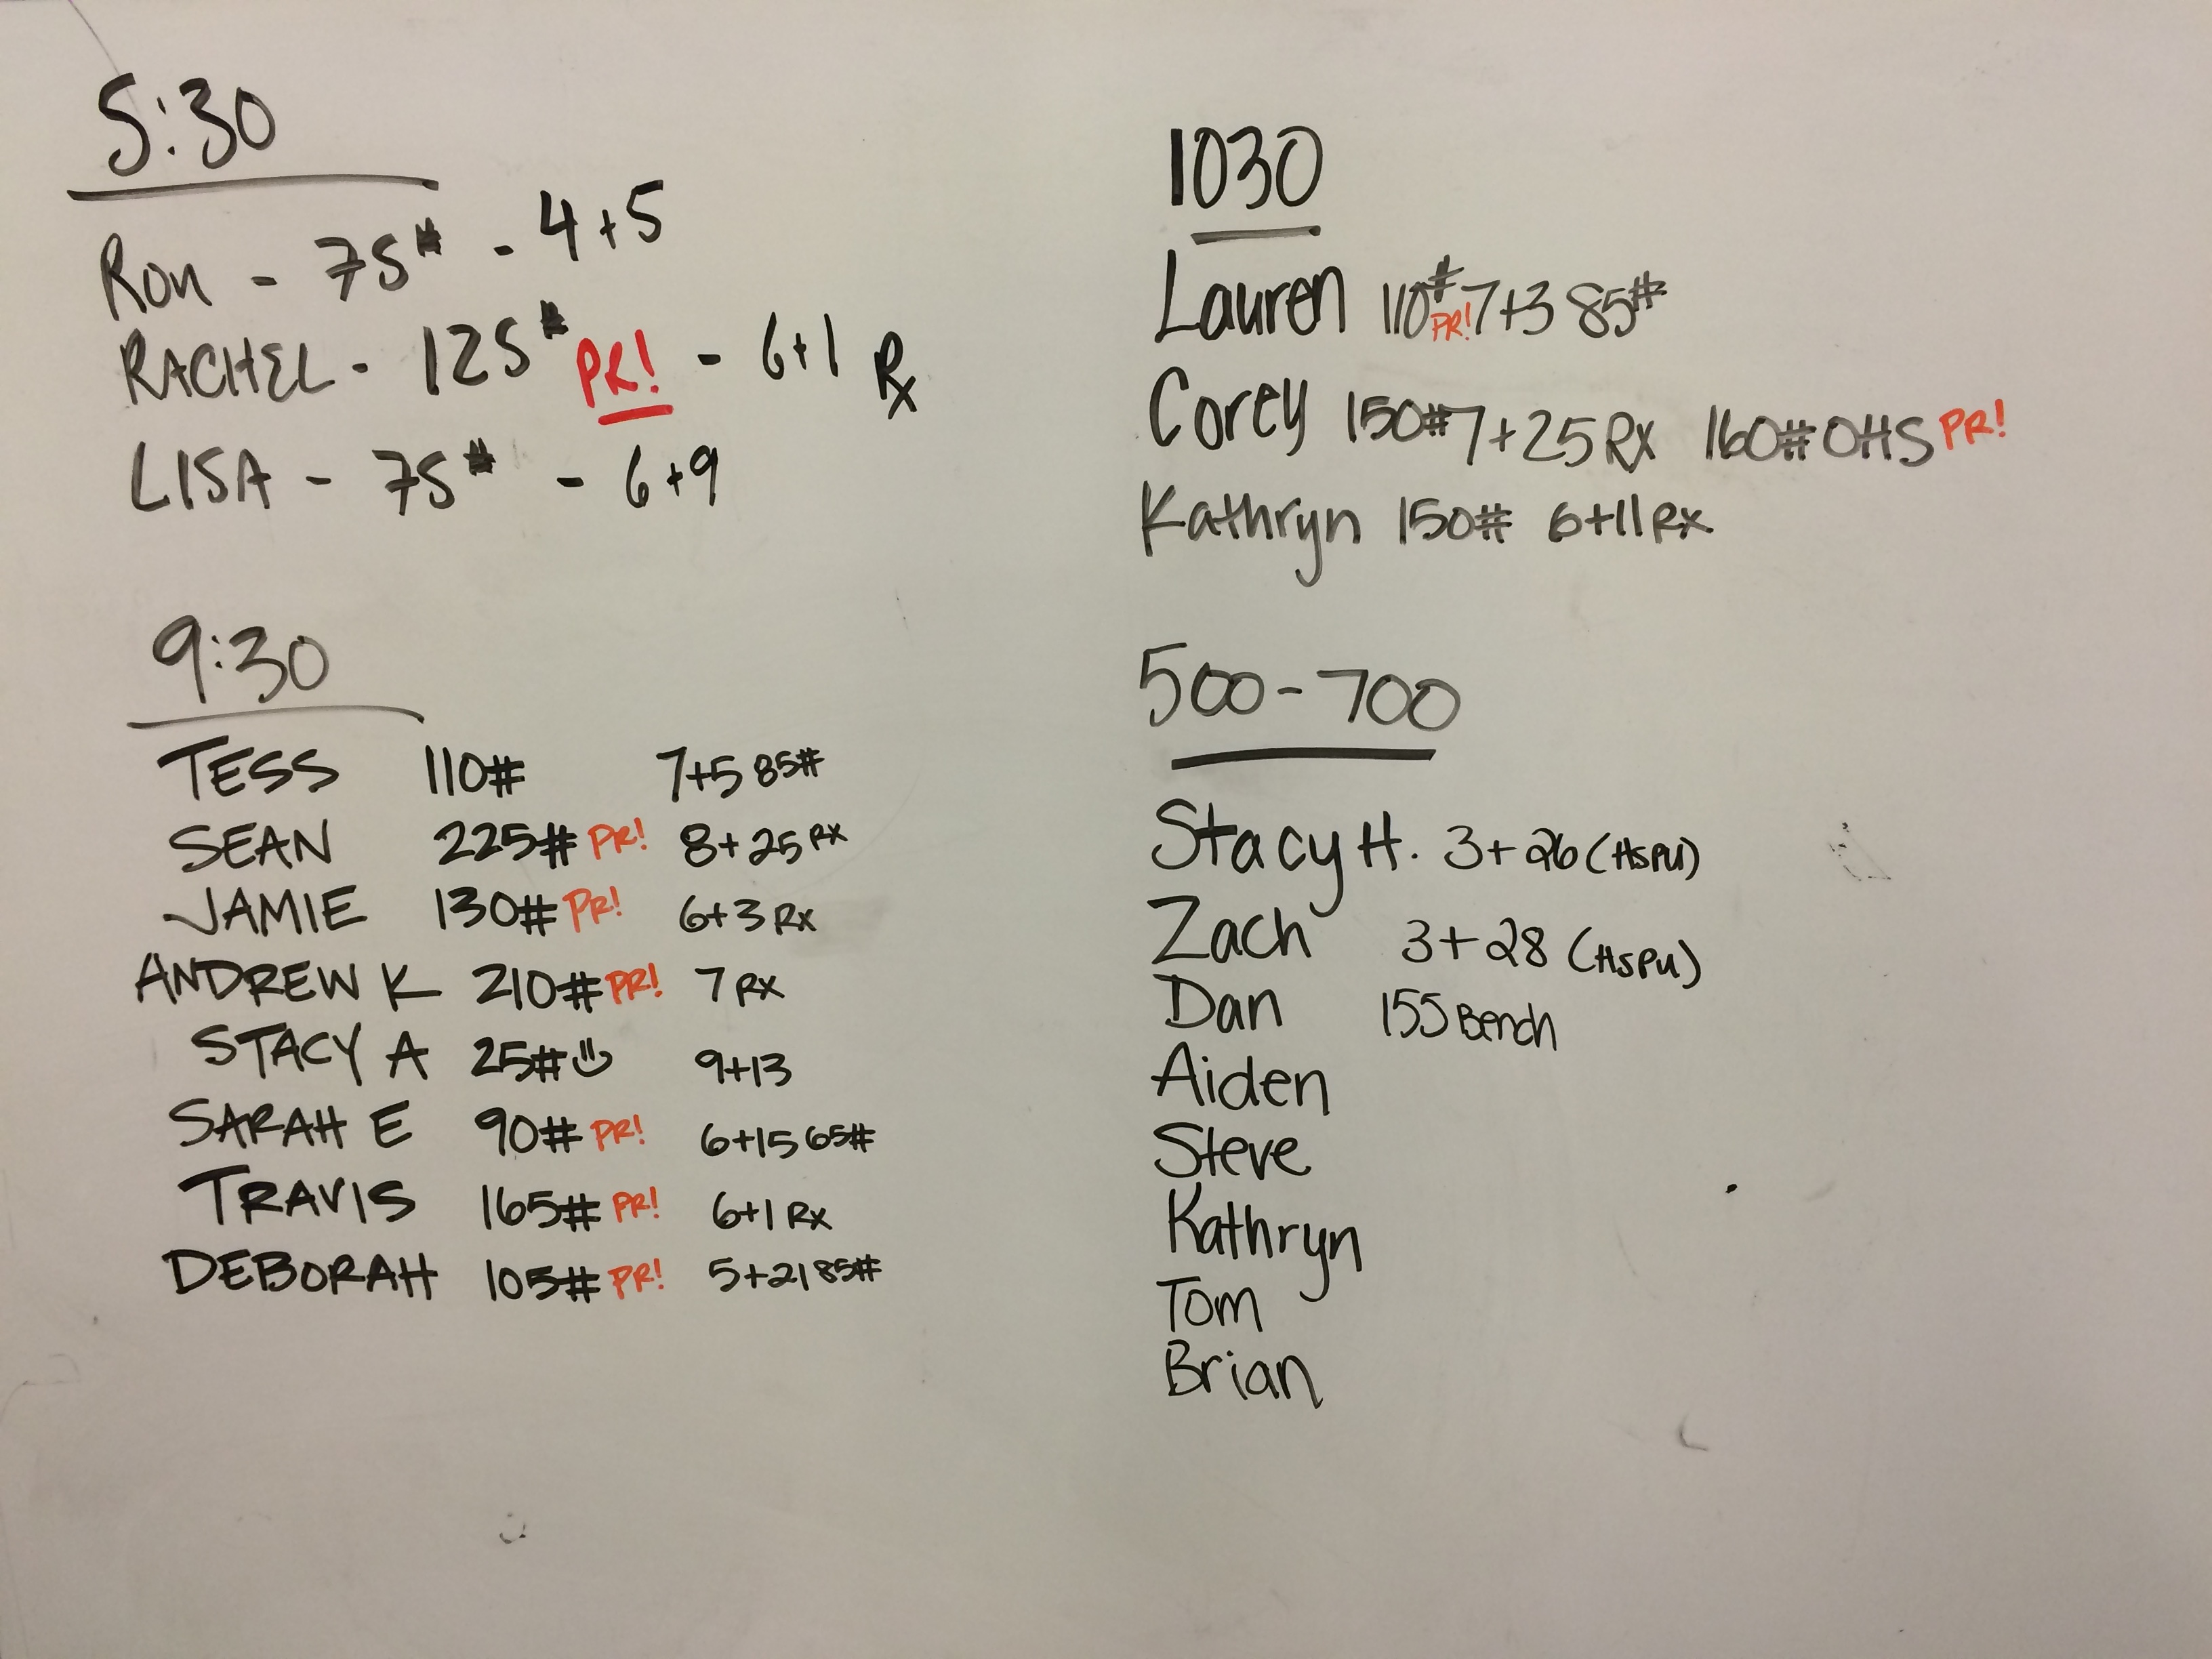 5:30
Ron - 75# - 4+5
RACHEL - 125# PR! - 6+1 Rx
LISA - 75# - 6+9
9:30
TESS 110# 7+5 85#
SEAN 225# PR! 8+25 RX
JAMIE 130# PR! 6+3 Rx
ANDREW K 210# PR! 7 RX
STACY A 25# 9+13
SARAH E 90# PR! 6+15 65#
TRAVIS 165# PR! 6+1 Rx
DEBORAH 105# PR! 5+21 85#
1030
Lauren 110# PR! 7+3 85#
Corey 150# 7+25 RX 160# OHS PR!
Kathryn 150# 6+11 RX
500-700
Stacy H. 3+26 (HSPU)
Zach 3+28 (HSPU)
Dan 155 Bench
Aiden
Steve
Kathryn
Tom
Brian